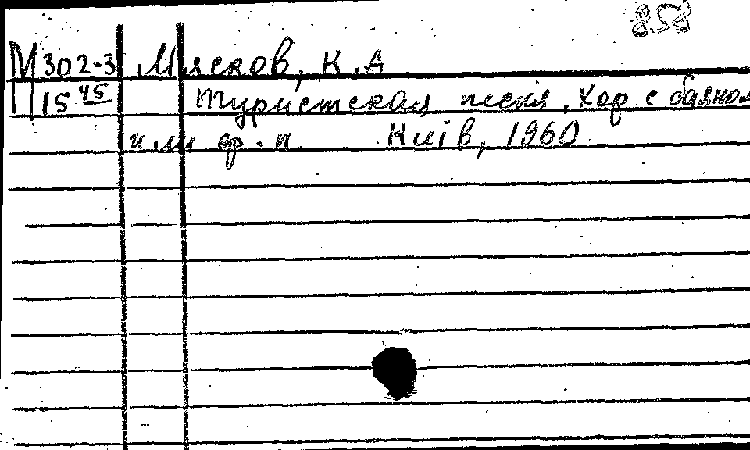 858
М 302-3 Мясков, К.А
П 15 45 Туристская песня. Хор с баяном
или ф.-п. Київ, 1960